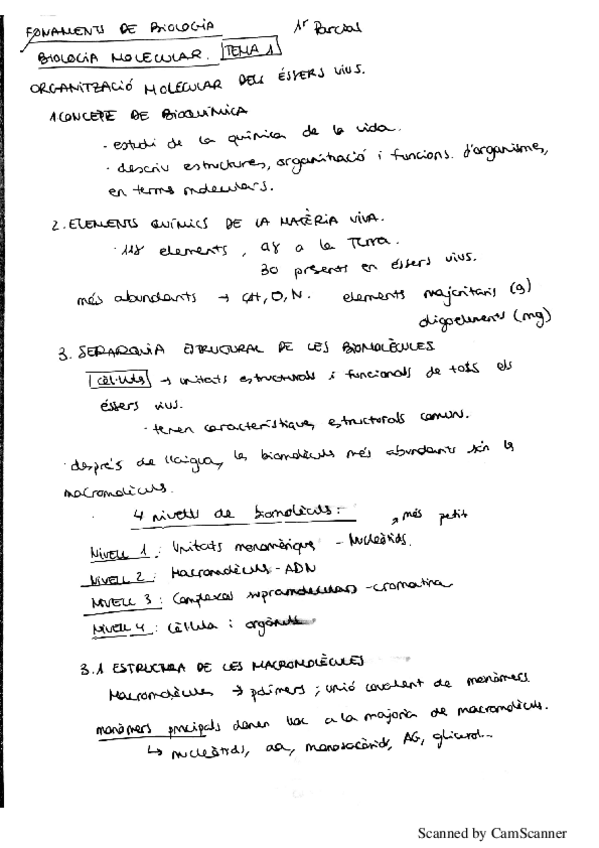 FONAMENTS DE BIOLOGIA 1r Parcial
BIOLOGIA MOLECULAR. TEMA 1
ORGANITZACIÓ MOLECULAR DELS ÉSSERS VIUS.
1 CONCEPTE DE BIOQUÍMICA
· estudi de la química de la vida.
· descriu estructures, organització i funcions d'organismes,
en terms moleculars.
2. ELEMENTS QUÍMICS DE LA MATÈRIA VIVA.
· 118 elements, 98 a la Terra.
30 presents en éssers vius.
més abundants → C,H,O,N. elements majoritaris (g)
oligoelements (mg)
3. JERARQUIA ESTRUCTURAL DE LES BIOMOLÈCULES
Cèl·lules → unitats estructurals i funcionals de tots els
éssers vius.
· tenen característiques estructurals comuns.
· després de l'aigua, les biomolècules més abundants són les
macromolècules.
· 4 nivells de biomolècules:
més petit
NIVELL 1: Unitats monomèriques - Nucleòtids.
NIVELL 2: Macromolècules - ADN
NIVELL 3: Complexes supramoleculars - cromatina
NIVELL 4: Cèl·lula i orgànuls
3.1 ESTRUCTURA DE LES MACROMOLÈCULES
Macromolècules → polímers; unió covalent de monòmers
monòmers principals donen lloc a la majoria de macromolècules.
↳ nucleòtids, aa, monosacàrids, AG, glicerol...
Scanned by CamScanner